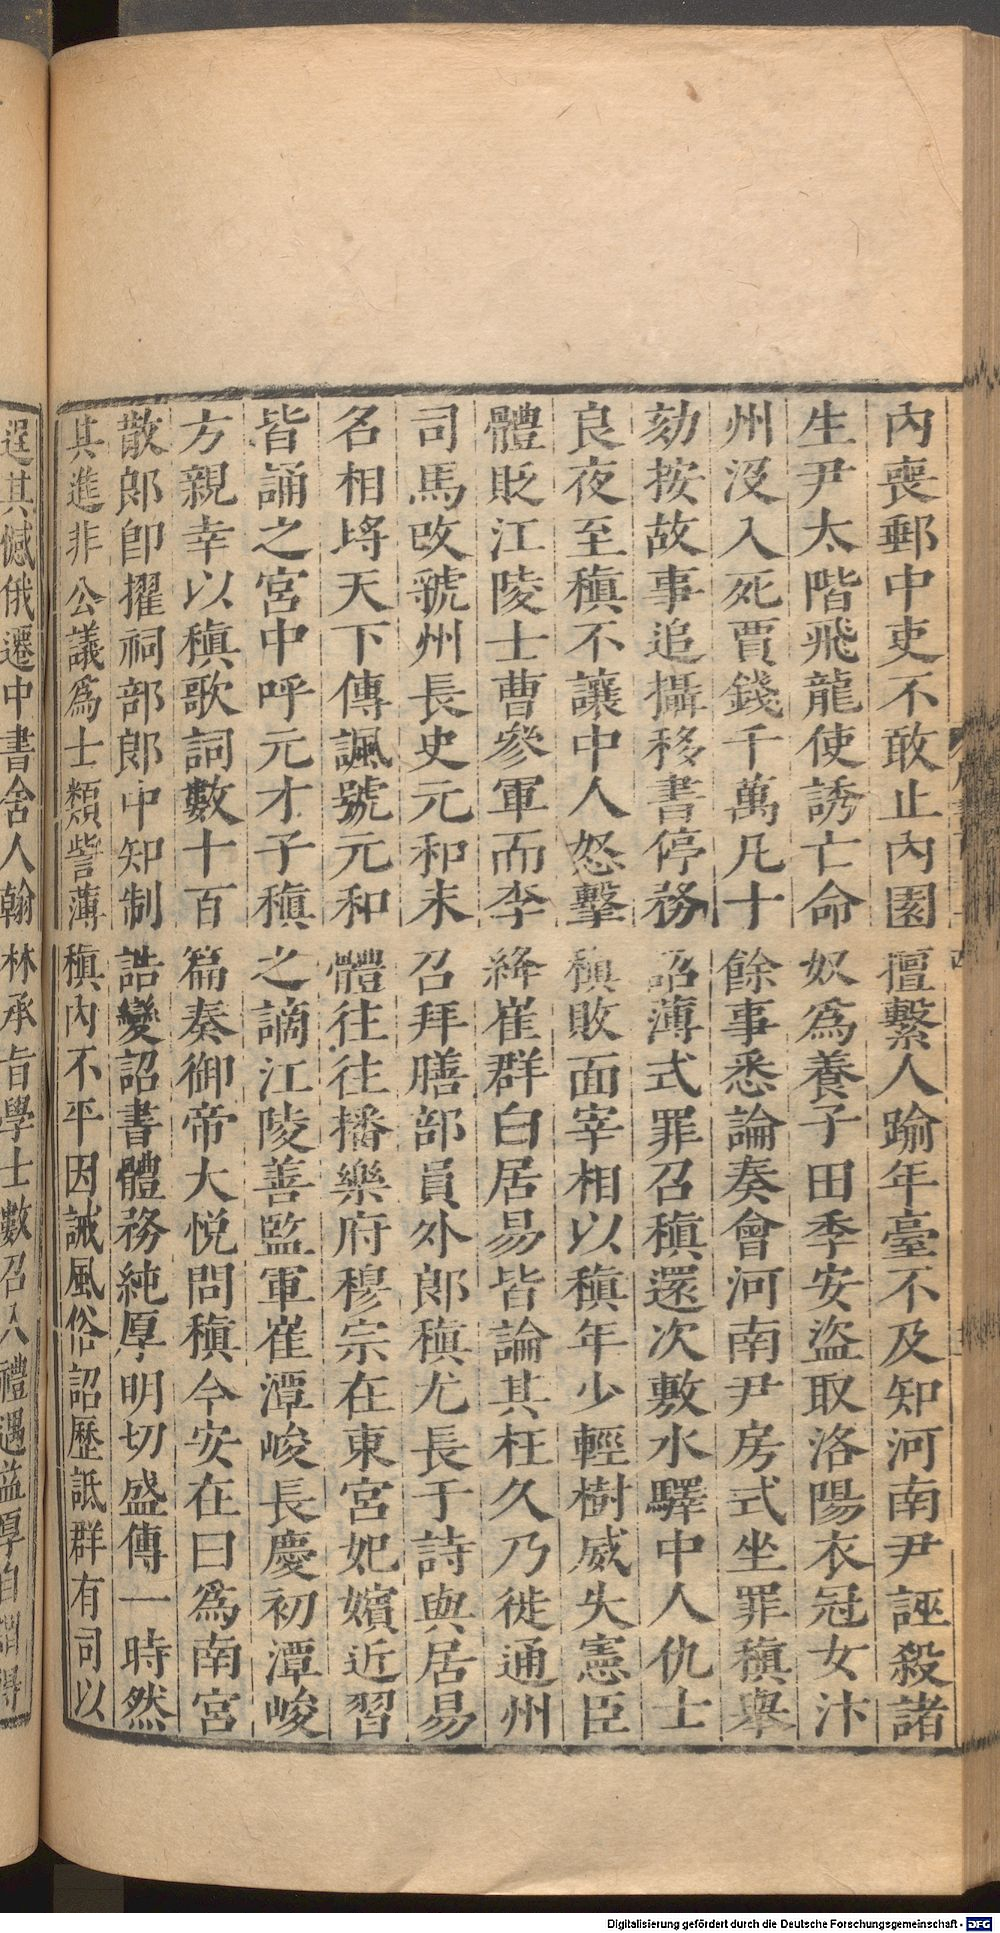 內喪郵中吏不敢止內園擅繫人踰年臺不及知河南尹誣殺諸
生尹太階飛龍使誘亡命奴爲養子田季安盜取洛陽衣冠女汴
州沒入死賈錢千萬凡十餘事悉論奏會河南尹房式坐罪稹舉
劾按故事追攝移書停務詔薄式罪召稹還次敷水驛中人仇士
良夜至稹不讓中人怒擊稹敗面宰相以稹年少輕樹威失憲臣
體貶江陵士曹參軍而李絳崔群白居易皆論其枉久乃徙通州
司馬改虢州長史元和末召拜膳部員外郎稹尤長于詩與居易
名相埒天下傳諷號元和體往往播樂府穆宗在東宮妃嬪近習
皆誦之宮中呼元才子稹之謫江陵善監軍崔潭峻長慶初潭峻
方親幸以稹歌詞數十百篇奏御帝大悅問稹今安在曰爲南宮
散郎卽擢祠部郎中知制誥變詔書體務純厚明切盛傳一時然
其進非公議爲士類訾薄稹內不平因誡風俗詔歷詆群有司以
逞其憾俄遷中書舍人翰林承旨學士數召入禮遇益厚自謂得
Digitalisierung gefördert durch die Deutsche Forschungsgemeinschaft - DFG